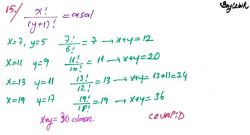 Soylesek
15.) x! / (y+1)! = asal
x=7, y=5 7!/6! = 7 → x+y=12
x=11 y=9 11!/10! = 11 → x+y=20
x=13 y=11 13!/12! = 13 → x+y=13+11=24
x=19 y=17 19!/18! = 19 → x+y=36
x+y=30 olmaz. CEVAP: D